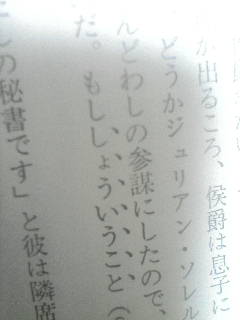 が出るころ、侯爵は息子に
どうかジュリアン・ソレル
んどわしの参謀にしたので、
だ。もししょういうこと（
しの秘書です」と彼は隣席